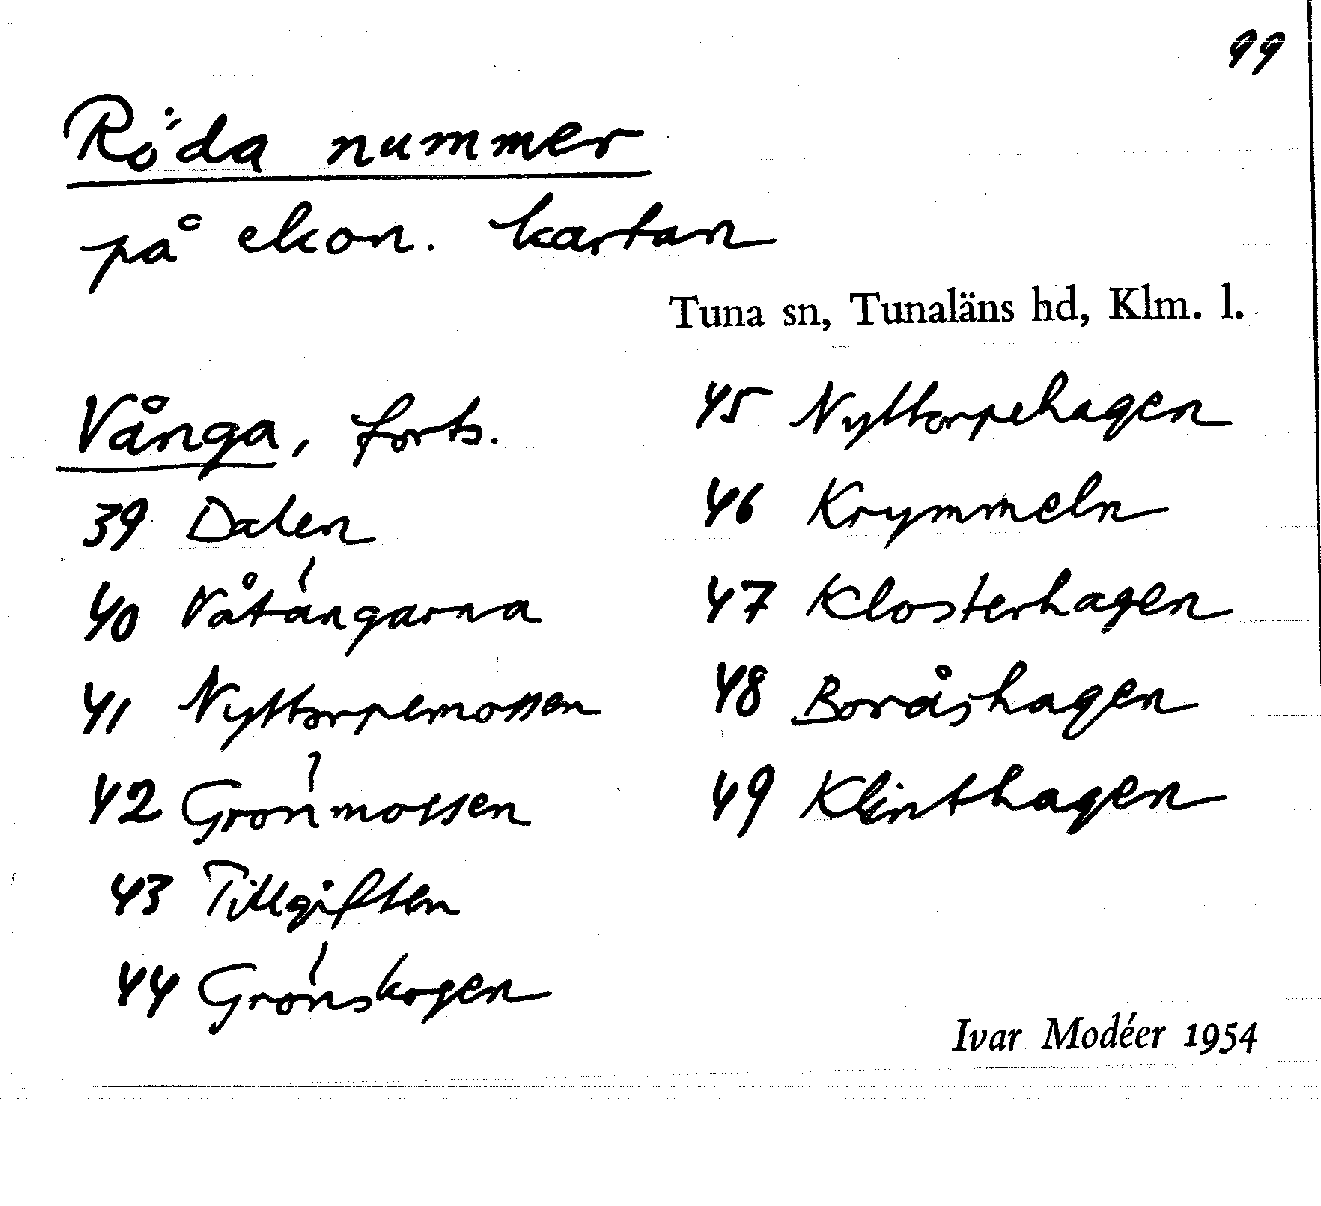 99
Röda nummer
på ekon. kartan
Tuna sn, Tunaläns hd, Klm. l.
Vånga, forts.
39 Dalen
40 Våtängarna
41 Nyttorpemossen
42 Grönmossen
43 Tillgiften
44 Grönskogen
45 Nyttorpehagen
46 Krymmeln
47 Klosterhagen
48 Boråshagen
49 Klinthagen
Ivar Modéer 1954